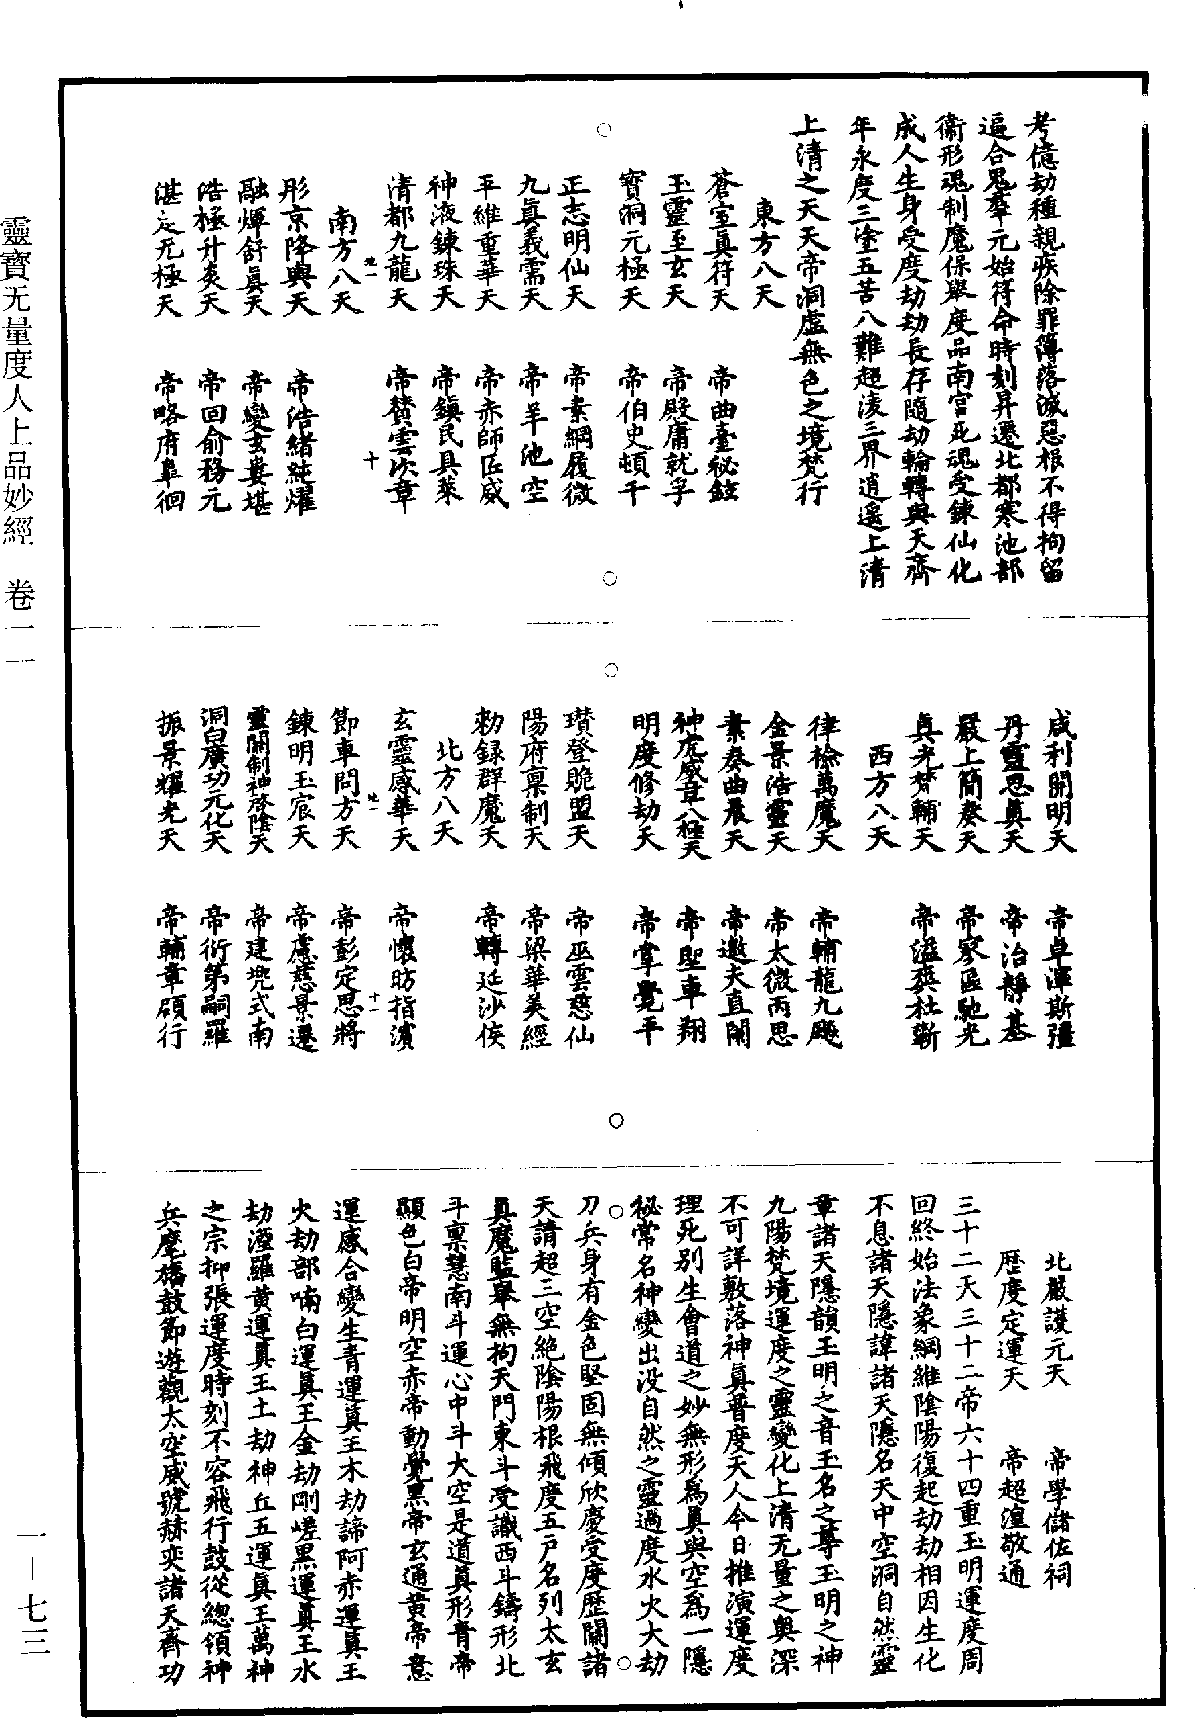 考億劫種親疾除罪簿落滅惡根不得拘留
逼合鬼羣元始符命時刻昇遷北都寒池部
衛形魂制魔保舉度品南宮死魂受鍊仙化
成人生身受度劫劫長存隨劫輪轉與天齊
年永度三塗五苦八難超淩三界逍遥上清
上清之天天帝洞虛無色之境梵行
東方八天
蒼室真符天 帝曲臺祕鉉
玉靈至玄天 帝殿庸就孚
寳洞元極天 帝伯史頓千
正志明仙天 帝素綱履微
九真義需天 帝羊池空
平維重華天 帝赤師匠威
神液鍊珠天 帝鎮民具萊
清都九龍天 帝贊雲次章
十
南方八天
彤京降輿天 帝浩緒純燿
融煇舒真天 帝變玄婁堪
浩極升炎天 帝回俞務元
湛元極天 帝略府阜徊
咸利開明天 帝卓渾斯彊
丹靈思真天 帝治靜基
嚴上簡奏天 帝寥區馳光
真光梵輔天 帝溢奕杜
西方八天
律檢萬魔天 帝輔龍九
金景浩靈天 帝太微丙思
素奏曲晨天 帝邀夫直開
神虎威章八極天 帝聖車翔
明度修劫天 帝掌覺平
瓚登賜盟天 帝巫雲慈仙
陽府稟制天 帝梁華美經
勑録群魔天 帝轉延沙侯
北方八天
玄靈感華天 帝懷昉指濱
節車問方天 帝彭定思將
十一
鍊明玉宸天 帝慮慈景遷
靈關制神啓陰天 帝建兜式南
洞白廣功元化天 帝衍第嗣羅
振景耀光天 帝輔章碩行
北嚴護元天 帝學儲佐祠
歷度定運天 帝超湟敬通
三十二天三十二帝六十四重玉明運度周
回終始法象綱維陰陽復起劫劫相因生化
不息諸天隱諱諸天隱名天中空洞自然靈
章諸天隱韻玉明之音玉名之尊玉明之神
九陽梵境運度之靈變化上清无量之奥深
不可詳敷落神真普度天人今日推演運度
理死別生會道之妙無形為真與空為一隱
祕常名神變出没自然之靈過度水火大劫
刀兵身有金色堅固無傾欣慶受度歷關諸
天請超三空絶陰陽根飛度五戸名列太玄
真魔監舉無拘天門東斗受識西斗鑄形北
斗稟慧南斗運心中斗大空是道真形青帝
顯色白帝明空赤帝動覺黑帝玄通黄帝意
運感合變生青運真王木劫諦阿赤運真王
火劫部喃白運真王金劫剛嵯黑運真王水
劫溼羅黄運真王土劫神丘五運真王萬神
之宗抑張運度時刻不容飛行鼓從總領神
兵麾幡鼓節遊觀太空威號赫奕諸天齊功
靈寳无量度人上品妙經 卷一一
一—七三